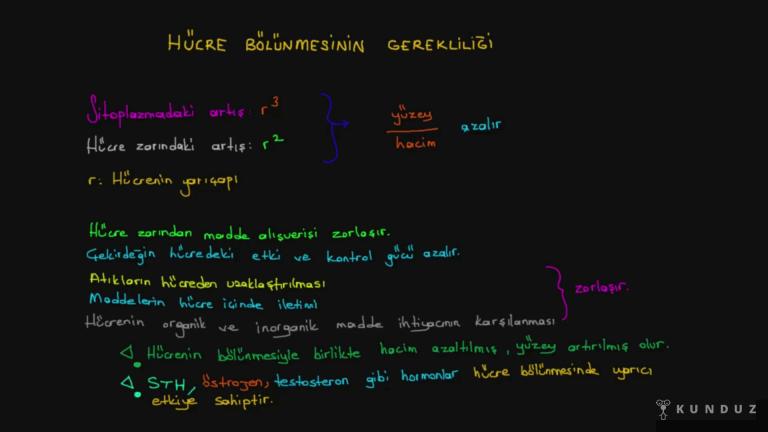 HÜCRE BÖLÜNMESİNİN GEREKLİLİĞİ
Sitoplazmadaki artış: r³
Hücre zarındaki artış: r²
yüzey
hacim
azalır
r: Hücrenin yarıçapı
Hücre zarından madde alışverişi zorlaşır.
Çekirdeğin hücredeki etki ve kontrol gücü azalır.
Atıkların hücreden uzaklaştırılması
Maddelerin hücre içinde iletimi
zorlaşır.
Hücrenin organik ve inorganik madde ihtiyacının karşılanması
Hücrenin bölünmesiyle birlikte hacim azaltılmış, yüzey artırılmış olur.
STH, östrojen, testosteron gibi hormonlar hücre bölünmesinde uyarıcı
etkiye sahiptir.
KUNDUZ